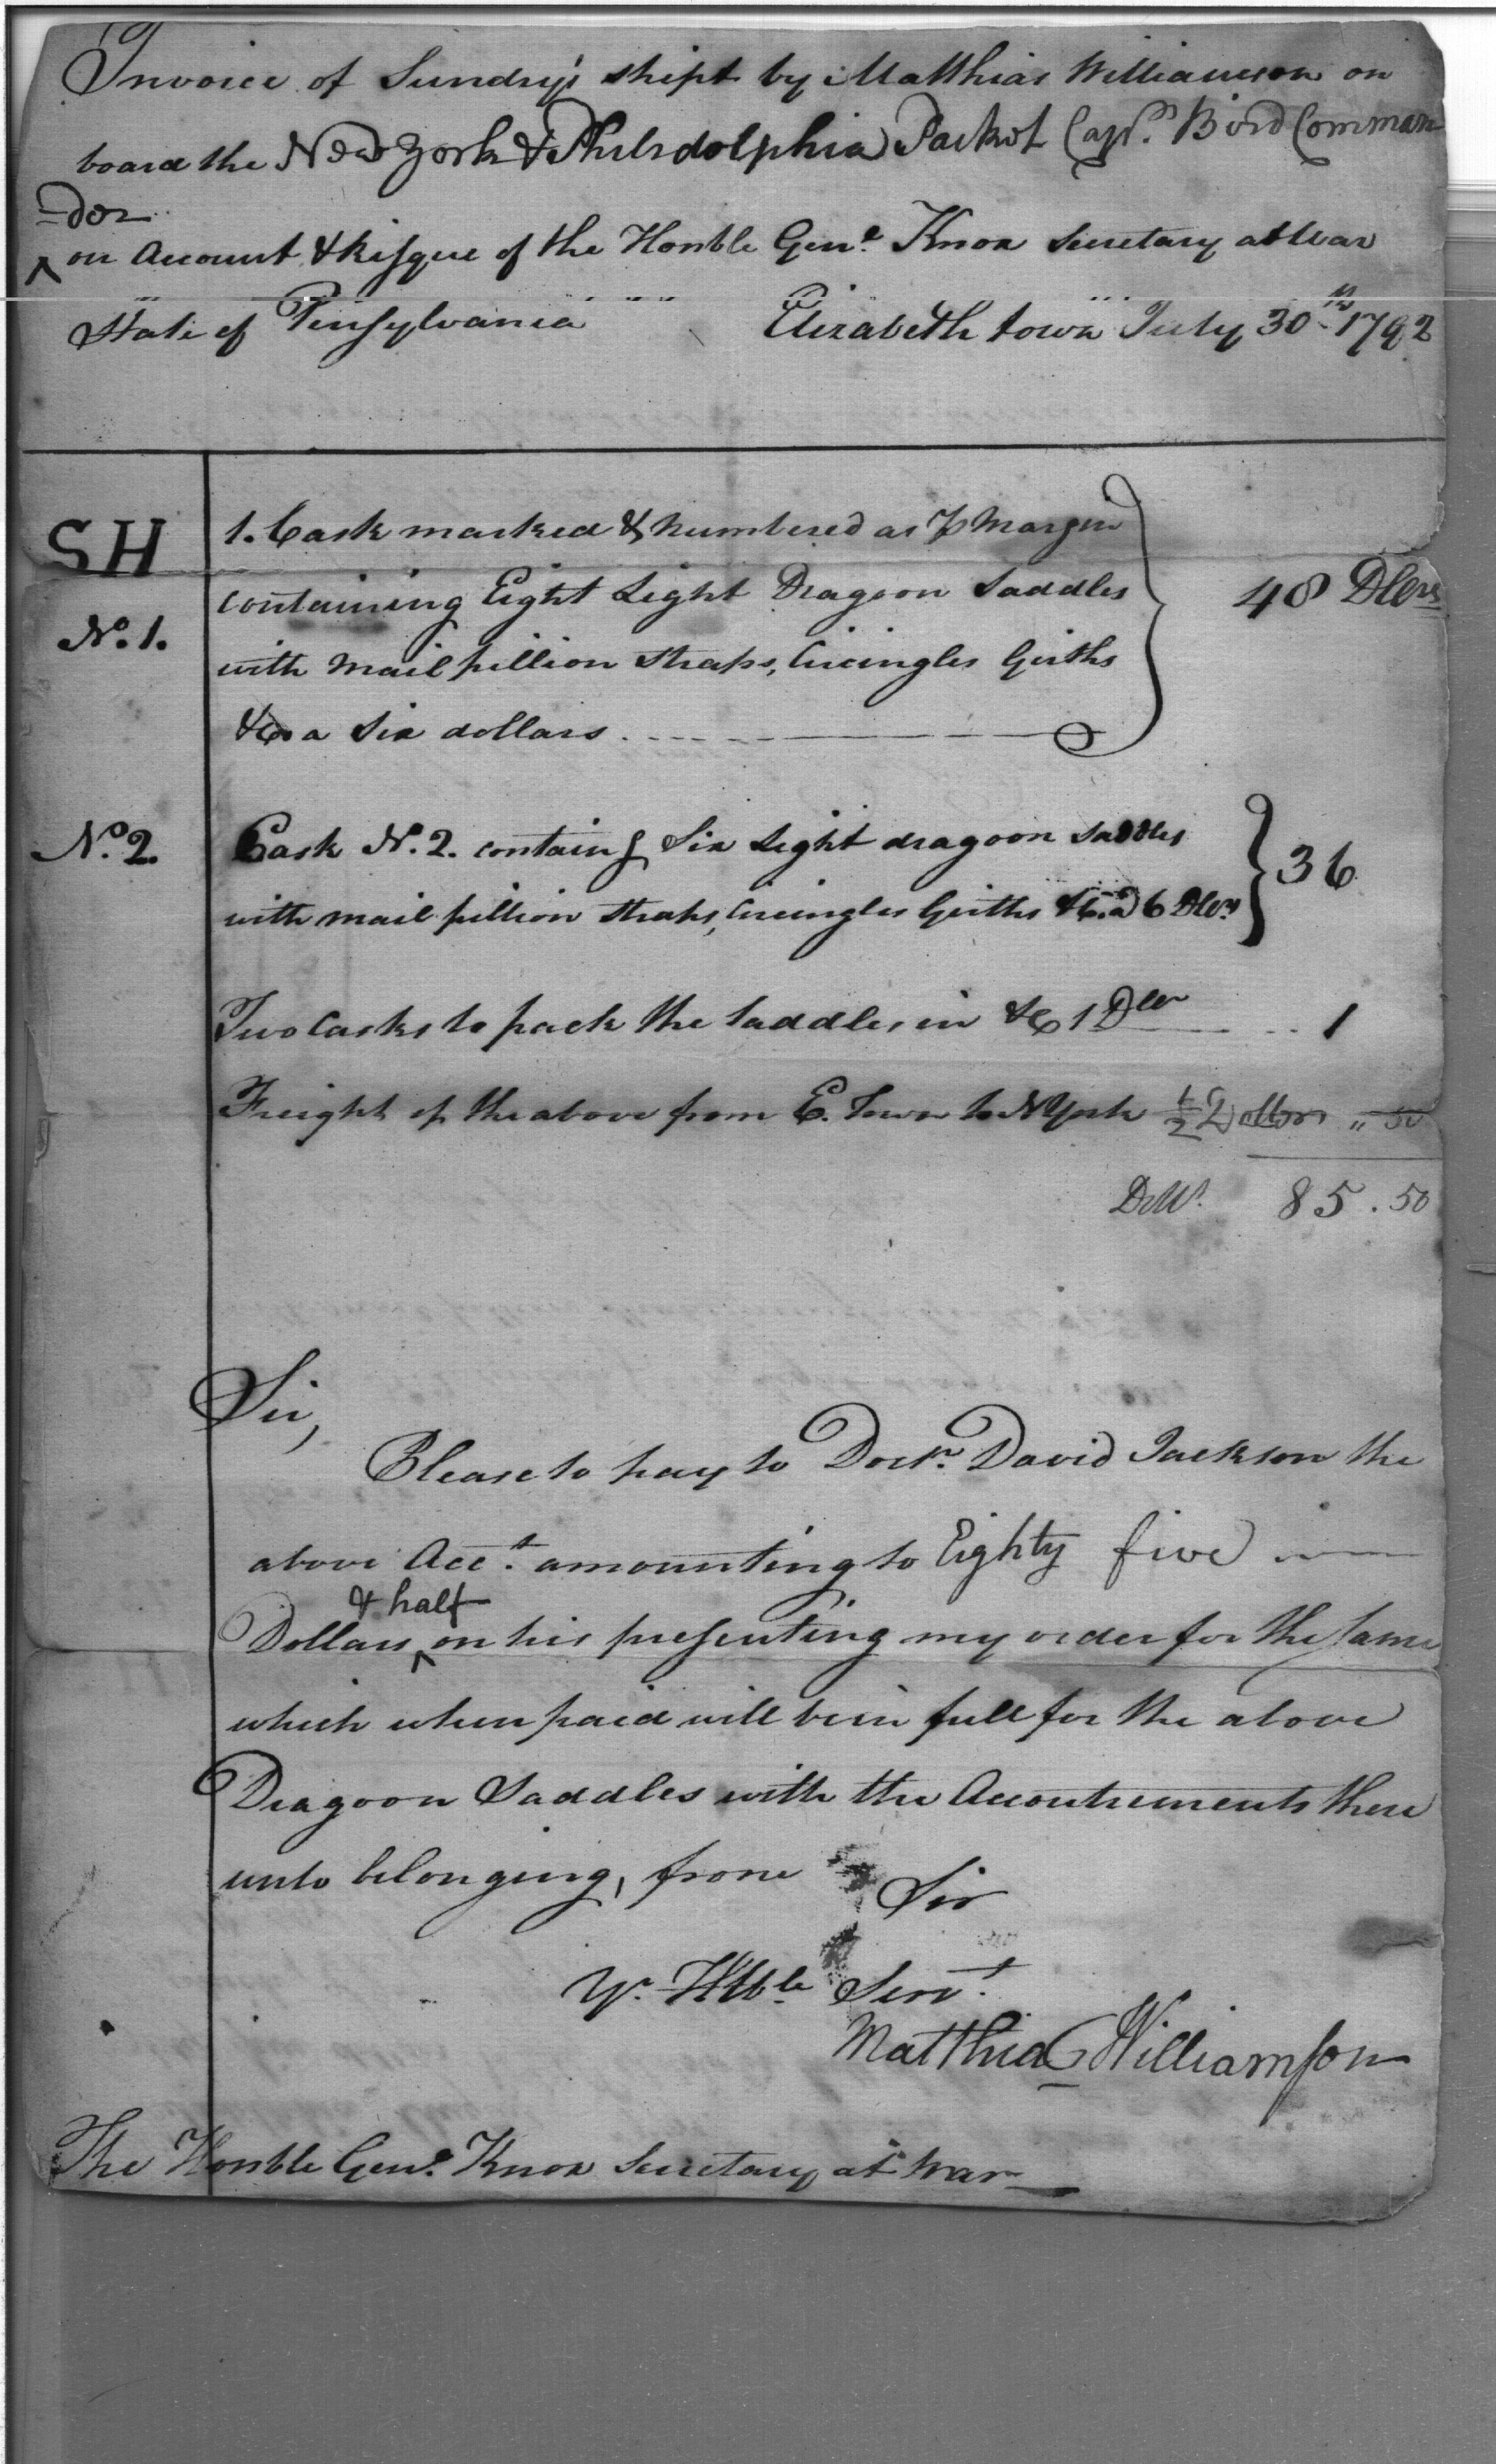 Invoice of Sundrys shipt by Matthias Williamson on
board the New York & Philadelphia Packet Capn. Bird Comman
=der
on Account & Risque of the Honble Genl. Knox Secretary at War
State of Pensylvania Elizabeth town July 30th 1792
SH
No. 1.
1. Cask marked & numbered as ⅌ Margin
containing Eight Light Dragoon Saddles
with Mail pillion Straps, Circingles Girths
&c a Six dollars
48 Dlers
No. 2.
Cask No. 2. containg Six Light dragoon Saddles
with mail pillion Straps, Circingles Girths &c. a 6 Dlers
36
Two Casks to pack the Saddles in &c 1 Dller 1
Freight of the above from E. Town to N York ½ Dollar „ 50
Dolls. 85.50
Sir,
Please to pay to Doctr. David Jackson the
above Acct. amounting to Eighty five
& half
Dollars ^ on his presenting my order for the Same
which when paid will be in full for the above
Dragoon Saddles with the Accoutrements there
unto belonging, from
Sir
Yr. Hble Servt.
Matthias Williamson
The Honble Genl. Knox Secretary at War